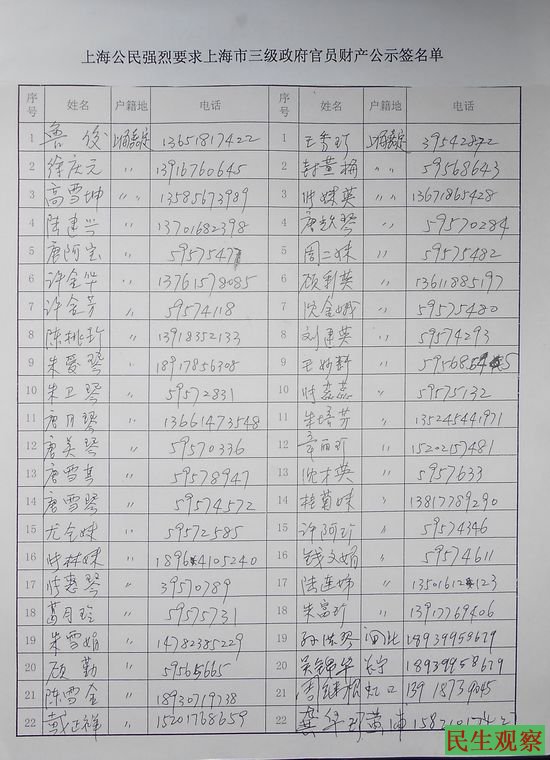 上海公民强烈要求上海市三级政府官员财产公示签名单
序号 姓名 户籍地 电话 序号 姓名 户籍地 电话
1 鲁俊 上海嘉定 13651817422 1 王秀珍 上海嘉定 39542872
2 徐庆元 〃 13916760645 2 封黄梅 〃 59568643
3 高雪坤 〃 13585673989 3 英 〃 13671865428
4 陆建兴 〃 13701682398 4 唐琴 〃 59570284
5 唐阿宝 〃 5957547 5 周二妹 〃 59575482
6 许金华 〃 13761578085 6 顾利英 〃 13611885197
7 许金芳 〃 59574118 7 沈金娥 〃 59575480
8 陈桃珍 〃 13918352133 8 刘建英 〃 59574293
9 朱爱琴 〃 18917856308 9 王 〃 595685
10 朱卫琴 〃 59572831 10 蕊蕊 〃 59575132
11 唐月琴 〃 13661473548 11 朱培芳 〃 135245441971
12 唐美琴 〃 59570336 12 章丽珍 〃 15202157481
13 唐雪其 〃 59578947 13 沈才英 〃 5957633
14 唐雪琴 〃 59574572 14 桂菊妹 〃 13817789290
15 尤全妹 〃 59572585 15 许阿珍 〃 59574346
16 林妹 〃 1896 4105240 16 钱文娟 〃 59574611
17 惠琴 〃 39570789 17 陆连娣 〃 13501612 123
18 葛月玲 〃 59575731 18 朱富珍 〃 13917769406
19 朱雪娟 〃 14782385229 19 孙洪琴 闸北 18939958679
20 顾勤 〃 59565665 20 吴锦华 长宁 18939958679
21 陈雪金 〃 18930719738 21 李继根 虹口 13918739045
22 戴正祥 〃 15201768659 22 龚华珍 黄浦
民生观察